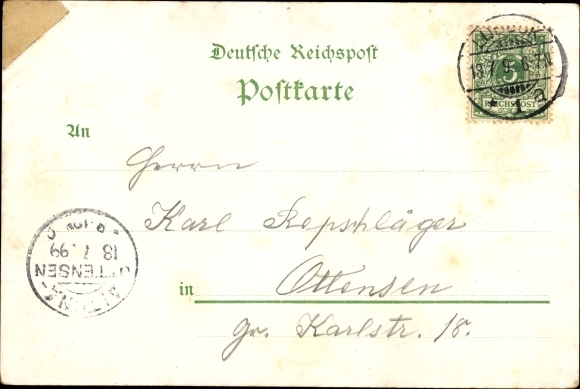 Deutsche Reichspost
Postkarte
5
REICHSPOST
An
Herrn
Karl Repschläger
in Ottensen
Gr. Karlstr. 18.
18 7 99
OTTENSEN